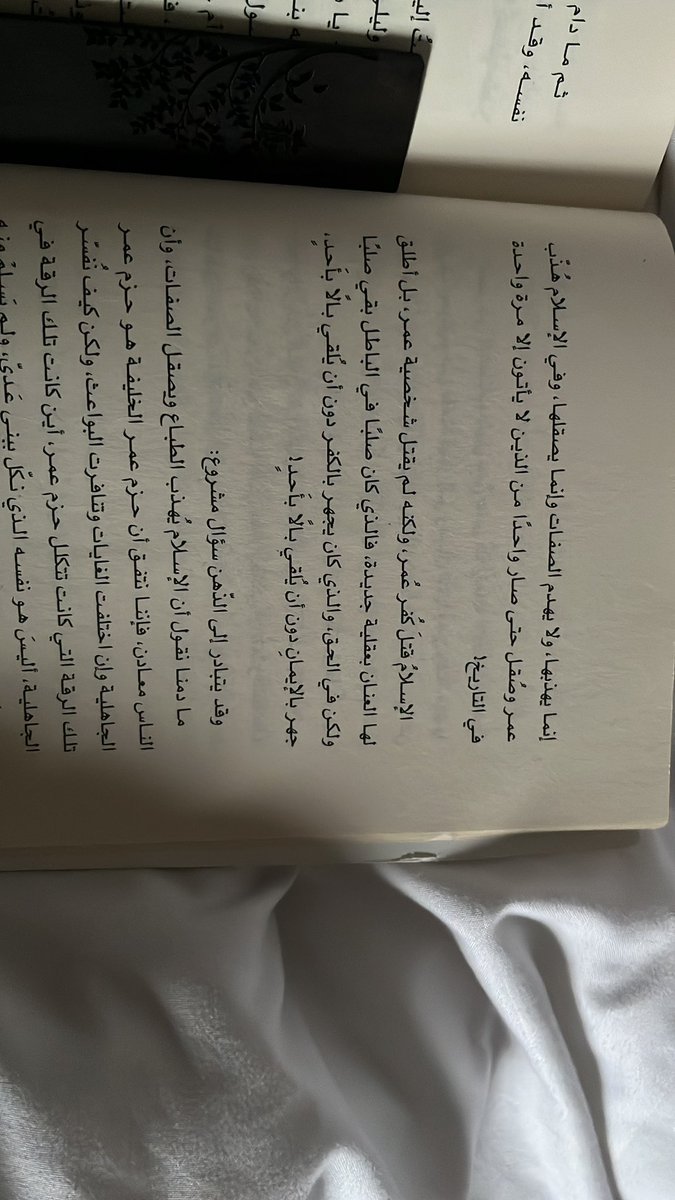 إنما يهذبها، ولا يهدم الصفات وإنما يصقلها، وفي الإسلام هُذّب
عمر وصُقل حتى صار واحدًا من الذين لا يأتون إلا مرة واحدة
في التاريخ!
الإسلامُ قتلَ كُفر عُمر، ولكنه لم يقتل شخصية عمر، بل أطلق
لها العنان بعقلية جديدة، فالذي كان صلبًا في الباطل بقي صلبًا
ولكن في الحق، والذي كان يجهر بالكفر دون أن يُلقي بالًا بأحدٍ،
جهر بالإيمانِ دون أن يُلقي بالًا بأحدٍ!
وقد يتبادر إلى الذّهن سؤال مشروع:
ما دمنا نقول أن الإسلام يُهذب الطباع ويصقل الصفات، وأن
الناس معادن، فإننا نتفق أن حزم عمر الخليفة هو حزم عمر
الجاهلية وإن اختلفت الغايات وتنافرت البواعث، ولكن كيف نُفسّر
تلك الرقة التي كانت تتكلل حزم عمر، أين كانت تلك الرقة في
الجاهلية، أليسَ هو نفسه الذي نكّل ببني عَديّ، ولم يَسلمْ منه
ثم ما دام
نفسه، وقد